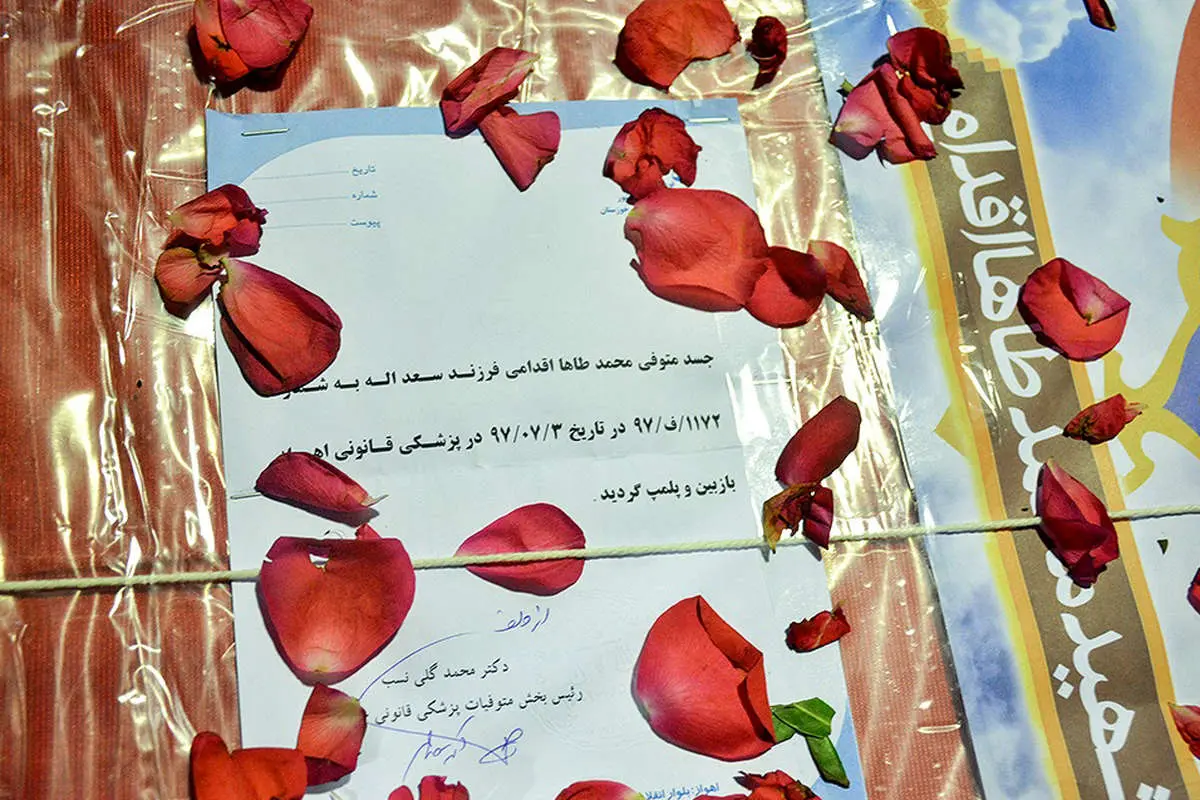 تاریخ
شماره
پیوست
خوزستان
جسد متوفی محمد طاها اقدامی فرزند سعد اله به
۱۱۷۲/ف/۹۷ در تاریخ ۹۷/۰۷/۳ در پزشکی قانونی
بازبین و پلمپ گردید.
دکتر محمد گلی نسب
رئیس بخش متوفیات پزشکی قانونی
اهواز: بلوار
طاها